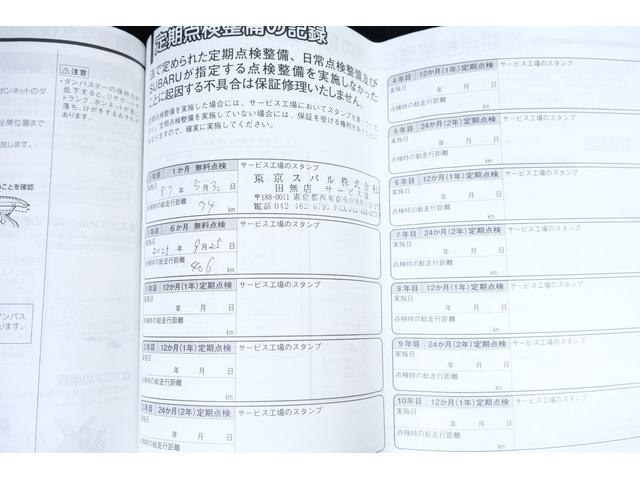 ⚠注意
・ダンパステーの保持力が
低下すると、リヤゲートや
トランク、ボンネットが急に
落ち、けがをするおそれが
あります。
ボンネットのダ
全開位置まで
ことを確認
ダンパス
ります。
定期点検整備の記録
法で定められた定期点検整備、日常点検整備及び
SUBARUが指定する点検整備を実施しなかった
ことに起因する不具合は保証修理いたしません。
定期点検整備を実施した場合には、サービス工場においてスタンプを
定期点検整備を実施していない場合には、保証を受ける権利を
なりますので、確実に実施してください。
1か月 無料点検
サービス工場のスタンプ
実施日
R7年 5月30日
点検時の総走行距離
74 km
東京スバル株式会社
田無店 サービス課
〒188-0011 東京都西東京市田無町
TEL 042-462-6791 FAX
6か月 無料点検
サービス工場のスタンプ
実施日
2025年 9月25日
点検時の総走行距離
406 km
1年目 12か月(1年)定期点検
サービス工場のスタンプ
実施日
年 月 日
点検時の総走行距離
km
2年目 12か月(1年)定期点検
サービス工場のスタンプ
実施日
年 月 日
点検時の総走行距離
km
3年目 24か月(2年)定期点検
サービス工場のスタンプ
実施日
年 月 日
点検時の総走行距離
km
4年目 12か月(1年)定期点検
サービス工場のスタンプ
実施日
年 月 日
点検時の総走行距離
km
5年目 24か月(2年)定期点検
サービス工場のスタンプ
実施日
年 月 日
点検時の総走行距離
km
6年目 12か月(1年)定期点検
サービス工場のスタンプ
実施日
年 月 日
点検時の総走行距離
km
7年目 24か月(2年)定期点検
サービス工場のスタンプ
実施日
年 月 日
点検時の総走行距離
km
8年目 12か月(1年)定期点検
サービス工場のスタンプ
実施日
年 月 日
点検時の総走行距離
km
9年目 24か月(2年)定期点検
サービス工場のスタンプ
実施日
年 月 日
点検時の総走行距離
km
10年目 12か月(1年)定期点検
サービス工場のスタンプ
実施日
年 月 日
点検時の総走行距離
km